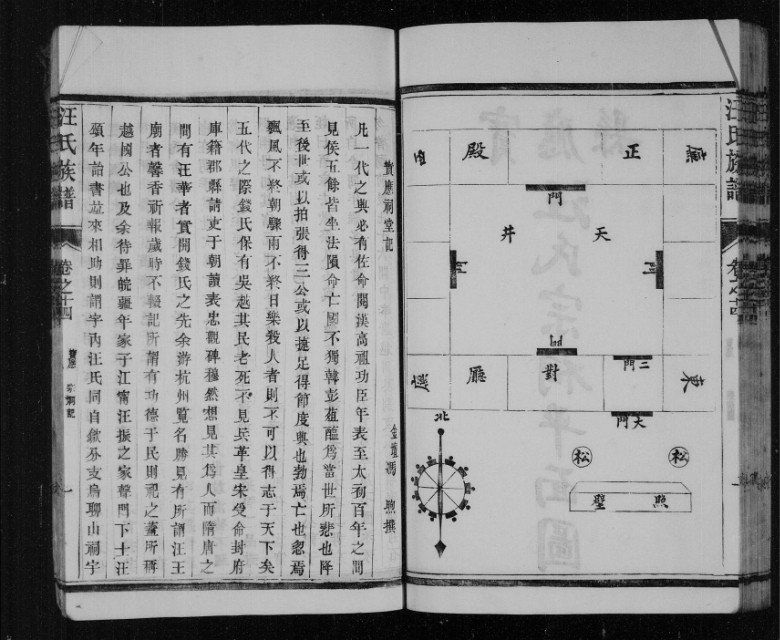 汪氏族譜
卷之十四
廂 正 殿 西
門
天 井
門
門
門
二門
東 對 廳
大門
北
松 松
照 壁
寶應祠堂記
金壇馮 煦撰
凡一代之興必有佐命閱漢高祖功臣年表至太初百年之間
見侯五餘皆坐法隕命亡國不獨韓彭菹醢爲當世所悲也降
至後世或以拍張得三公或以捷足得節度興也勃焉亡也忽焉
飄風不終朝驟雨不終日樂殺人者則不可以得志于天下矣
五代之際錢氏保有吳越其民老死不見兵革皇宋受命封府
庫籍郡縣請吏于朝讀表忠觀碑穆然想見其爲人而隋唐之
間有汪華者實開錢氏之先余游杭州覧名勝見有所謂汪王
廟者馨香祈報歲時不輟記所謂有功德于民則祀之蓋所稱
越國公也及余待罪皖疆年家子江甯汪振之家聲門下士汪
頌年詒書並來相助則謂宇內汪氏同自歙分支烏聊山祠宇
汪氏族譜
卷之十四
寶應 宗祠記
一